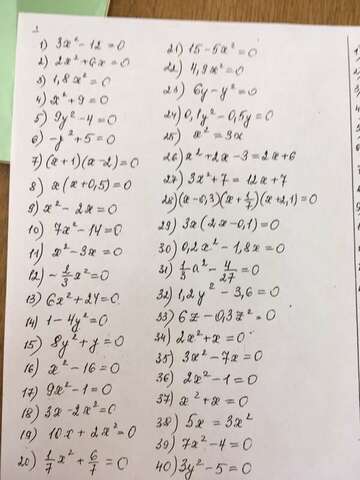 1) 3x² - 12 = 0
2) 2x² + 6x = 0
3) 1,8x² = 0
4) x² + 9 = 0
5) 9y² - 4 = 0
6) -y² + 5 = 0
7) (x+1)(x-2) = 0
8) x(x+0,5) = 0
9) x² - 2x = 0
10) 7x² - 14 = 0
11) x² - 3x = 0
12) -⅓x² = 0
13) 6x² + 24 = 0
14) 1 - 4y² = 0
15) 8y² + y = 0
16) x² - 16 = 0
17) 9x² - 1 = 0
18) 3x - 2x² = 0
19) 10x + 2x² = 0
20) 1/7 x² + 6/7 = 0
21) 15 - 5x² = 0
22) 4,9x² = 0
23) 6y - y² = 0
24) 0,1y² - 0,5y = 0
25) x² = 3x
26) x² + 2x - 3 = 2x + 6
27) 3x² + 7 = 12x + 7
28) (x-0,3)(x+1/7)(x+2,1) = 0
29) 3x(2x-0,1) = 0
30) 0,2x² - 1,8x = 0
31) 1/3 a² - 4/27 = 0
32) 1,2y² - 3,6 = 0
33) 6z - 0,3z² = 0
34) 2x² + x = 0
35) 3x² - 7x = 0
36) 2x² - 1 = 0
37) x² + x = 0
38) 5x = 3x²
39) 7x² - 4 = 0
40) 3y² - 5 = 0